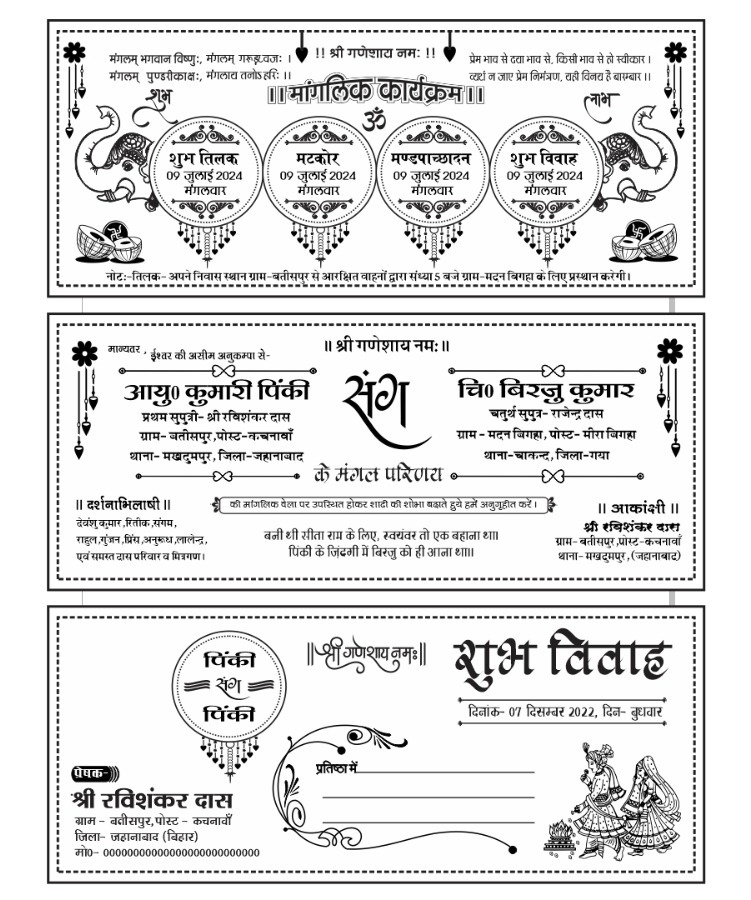 मंगलम् भगवान विष्णुः, मंगलम् गरूड़ध्वजः ।
मंगलम् पुण्डरीकाक्षः, मंगलाय तनोऽहरिः ।।
!! श्री गणेशाय नमः !!
प्रेम भाव से दया भाव से, किसी भाव से हो स्वीकार ।
व्यर्थ न जाए प्रेम निमंत्रण, यही विनय है बारम्बार ।।
शुभ
।। मांगलिक कार्यक्रम ।।
लाभ
ॐ
शुभ तिलक
09 जुलाई 2024
मंगलवार
मटकोर
09 जुलाई 2024
मंगलवार
मण्डपाच्छादन
09 जुलाई 2024
मंगलवार
शुभ विवाह
09 जुलाई 2024
मंगलवार
नोटः-तिलक- अपने निवास स्थान ग्राम-बतीसपुर से आरक्षित वाहनों द्वारा संध्या 5 बजे ग्राम-मदन बिगहा के लिए प्रस्थान करेगी।
मान्यवर , ईश्वर की असीम अनुकम्पा से-
॥ श्री गणेशाय नमः॥
आयु0 कुमारी पिंकी
प्रथम सुपुत्री- श्री रविशंकर दास
ग्राम- बतीसपुर ,पोस्ट-कचनावाँ
थाना- मखदुमपुर, जिला-जहानाबाद
संग
चि0 बिरजु कुमार
चतुर्थ सुपुत्र- राजेन्द्र दास
ग्राम - मदन बिगहा, पोस्ट- मीरा बिगहा
थाना-चाकन्द, जिला-गया
के मंगल परिणय
की मांगलिक वेला पर उपस्थित होकर शादी की शोभा बढ़ाते हुये हमें अनुगृहीत करें ।
॥ दर्शनाभिलाषी ॥
देवंशु कुमार ,रितीक ,संगम,
राहुल,गुंजन,प्रिंस,अनुरूध,लालेन्द्र,
एवं समस्त दास परिवार व मित्रगण।
बनी थी सीता राम के लिए, स्वयंवर तो एक बहाना था॥
पिंकी के जिंदगी में बिरजु को ही आना था॥
॥ आकांक्षी ॥
श्री रविशंकर दास
ग्राम- बतीसपुर,पोस्ट-कचनावाँ
थाना- मखदुमपुर, (जहानाबाद)
पिंकी
संग
पिंकी
॥श्री गणेशाय नमः॥
शुभ विवाह
दिनांक- 07 दिसम्बर 2022, दिन- बुधवार
प्रतिष्ठा में
प्रेषक-
श्री रविशंकर दास
ग्राम - बतीसपुर, पोस्ट - कचनावाँ
जिला- जहानाबाद (बिहार)